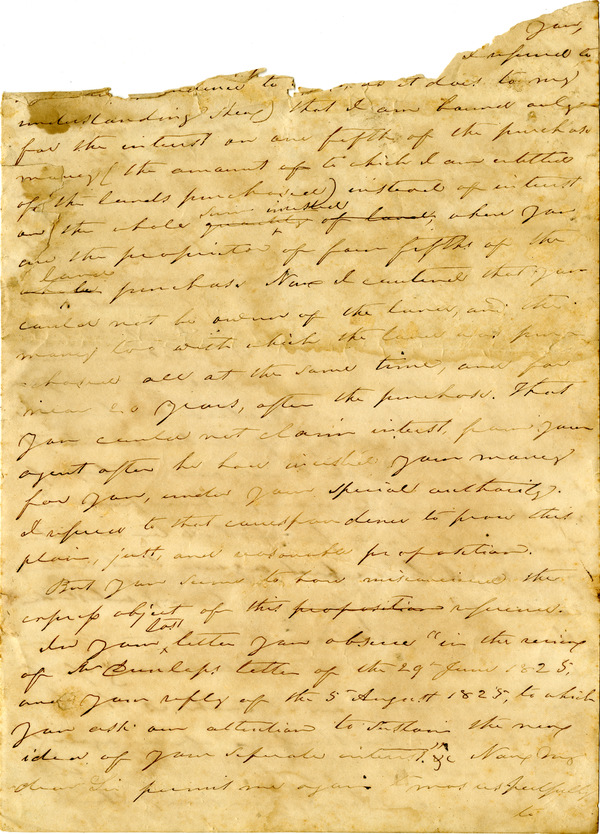 you,
I refered to
to as it does to my
understanding shew) that I am bound only
for the interest on one fifth of the purchase
money (the amount of to which I am entitled
of the lands purchased) instead of interest
sum invested
on the whole quantity of land, where you
are the proprietor of four fifths of the
land
purchase. Now I contend that you
could not be owner of the land, and the
money too with which the land was pur-
chased all at the same time, and for
near 20 years, after the purchase. That
you could not claim interest from your
agent after he had invested your money
for you, under your special authority.
I refered to that correspondence to prove this
plain, just, and reasonable proposition.
But you seem to have misconceived the
express object of this proposition reference.
last
In your letter you observe "in the review
of Mr Dunlaps letter of the 29th June 1825,
and your reply of the 5th August 1825, to which
you ask our attention to sustain the new
idea of your seperate interest." &c Now my
dear Sir permit me again most respectfully
to